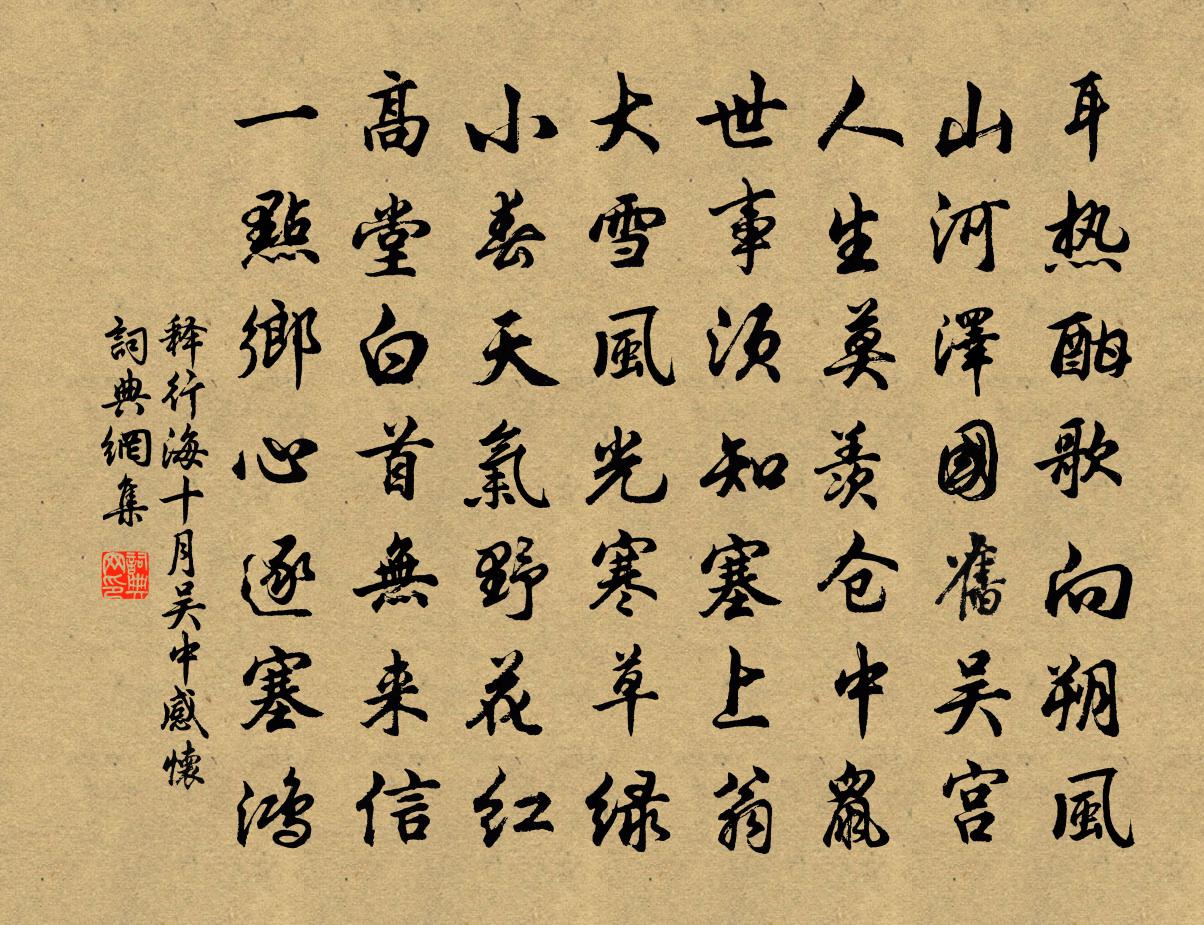 耳热酣歌向朔風
山河澤國舊吴宫
人生莫羡仓中鼠
世事须知塞上翁
大雪風光寒草绿
小春天氣野花红
高堂白首無来信
一點鄉心逐塞鸿
释行海十月吴中感懷
詞典網集
詞典网印